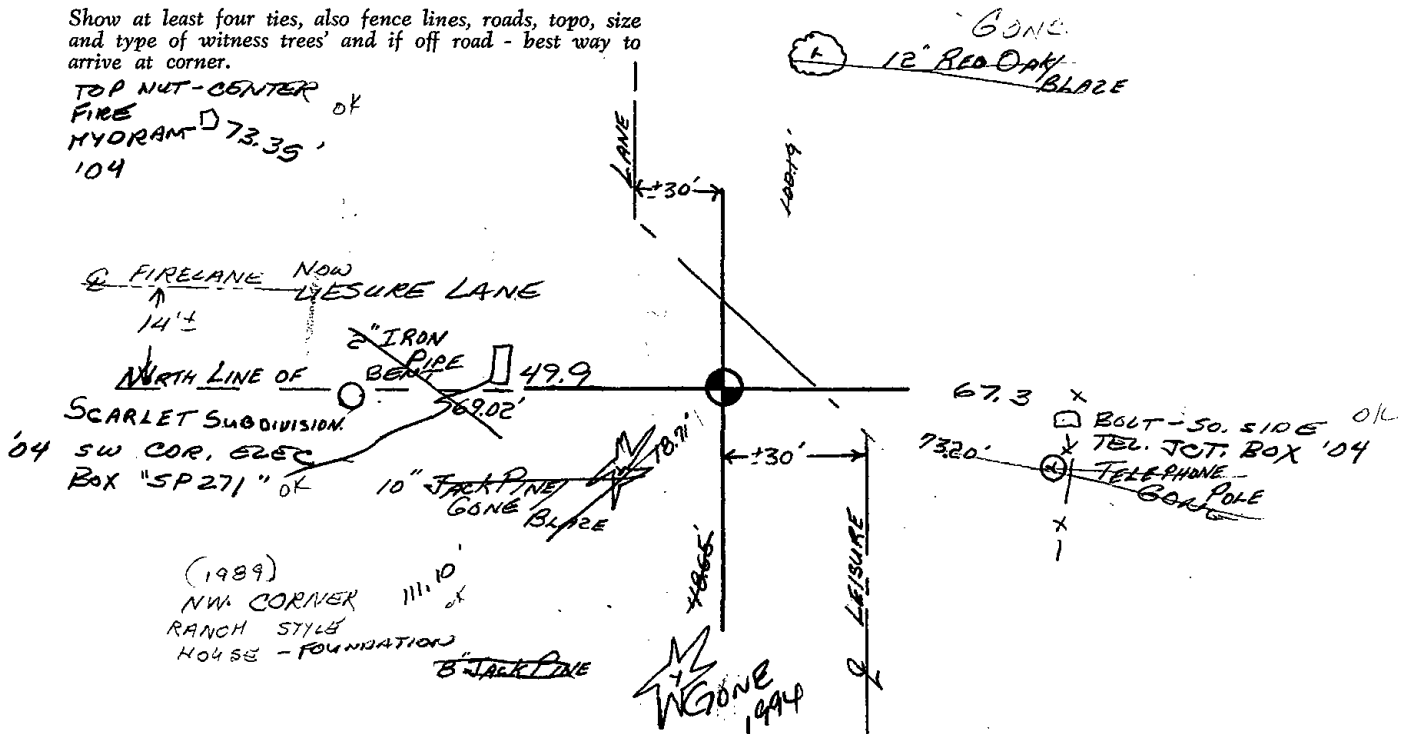 Show at least four ties, also fence lines, roads, topo, size
and type of witness trees' and if off road - best way to
arrive at corner.
TOP NUT-CENTER OK
FIRE
HYDRANT 73.35'
'04
GONE
12" RED OAK
BLAZE
LANE
±30'
100.19'
℄ FIRELANE NOW
LIESURE LANE
14'±
2" IRON
PIPE
BENT
49.9
NORTH LINE OF
569.02'
SCARLET SUBDIVISION
'04 SW COR. ELEC
BOX "SP271" OK
67.3
BOLT-SO. SIDE
TEL. JCT. BOX '04
73.20'
TELEPHONE
POLE
GONE
78.71'
±30'
10" JACK PINE
GONE
BLAZE
48.65'
℄ LEISURE
(1989)
NW. CORNER 111.10'
OK
RANCH STYLE
HOUSE - FOUNDATION
8" JACK PINE
GONE
1994